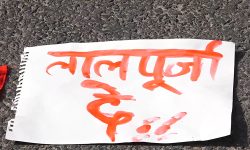 लाल पूर्जा
दे..!!